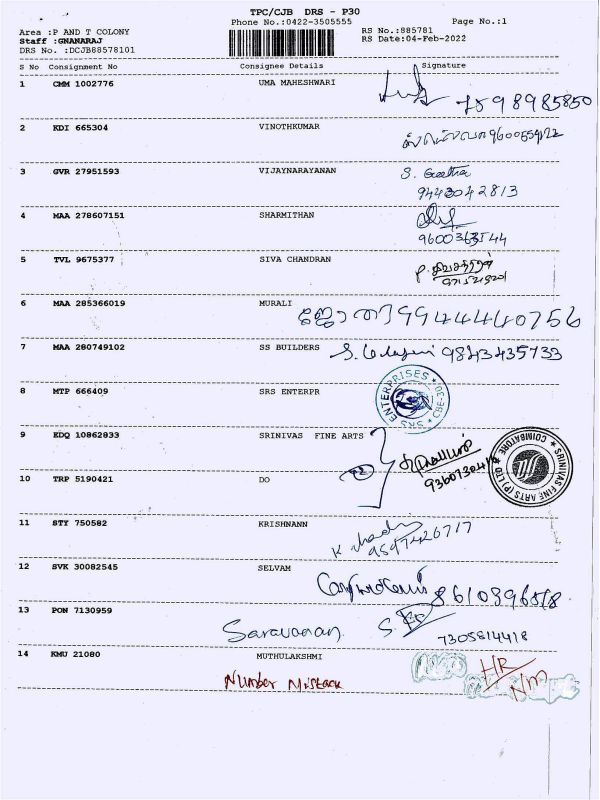 TPC/CJB DRS - P30
Phone No.:0422-3505555
Page No.:1
Area :P AND T COLONY
RS No.:885781
Staff :GNANARAJ
RS Date:04-Feb-2022
DRS No. :DCJB88578101
S No Consignment No Consignee Details Signature
1 CMM 1002776 UMA MAHESHWARI
7598985850
2 KDI 665304 VINOTHKUMAR
3 GVR 27951593 VIJAYNARAYANAN S. Geetha
9443042813
4 MAA 278607151 SHARMITHAN
9600363544
5 TVL 9675377 SIVA CHANDRAN
6 MAA 285366019 MURALI
9944440756
7 MAA 280749102 SS BUILDERS 9843435733
8 MTP 666409 SRS ENTERPR
SRS ENTERPRISES CBE-30
9 EDQ 10862833 SRINIVAS FINE ARTS
SRINIVAS FINE ARTS (P) LTD COIMBATORE
10 TRP 5190421 DO
11 STY 750582 KRISHNANN
12 SVK 30082545 SELVAM
13 PON 7130959
Saravanan.
7305814418
14 KMU 21080 MUTHULAKSHMI
Number Mistack
HR
N/M